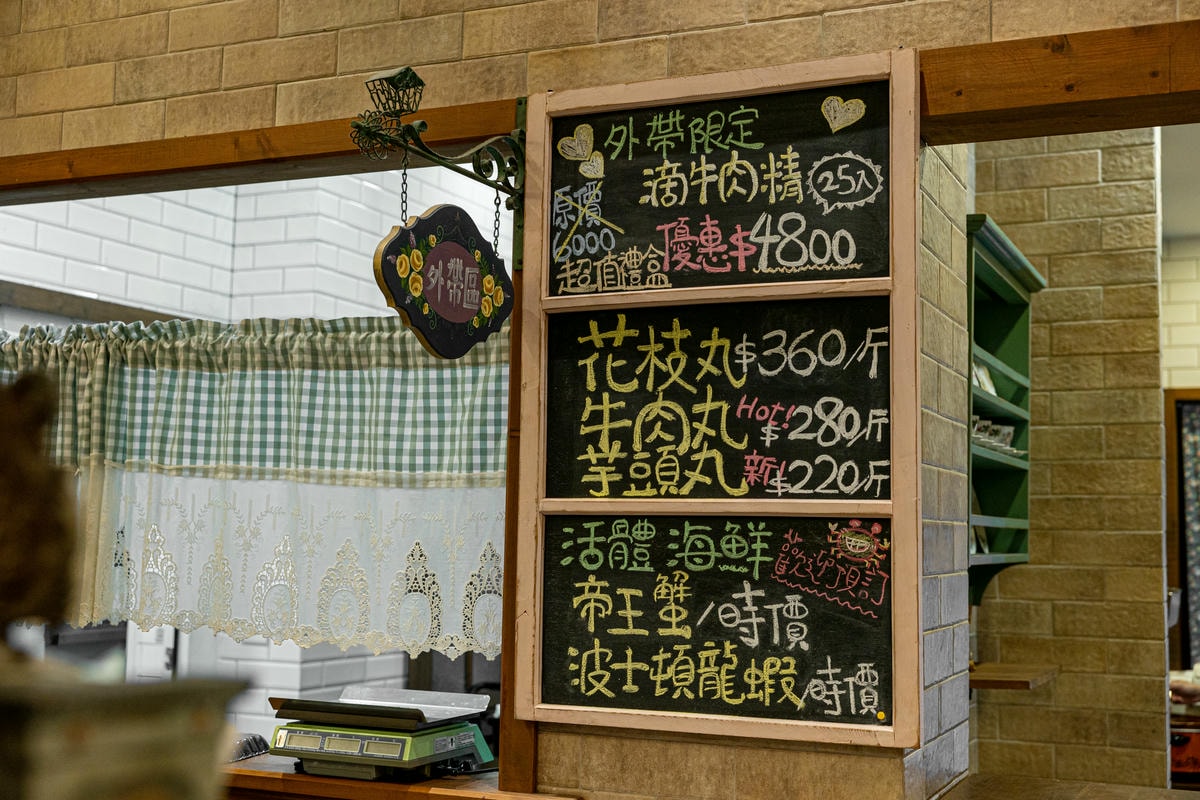 外帶區
外帶限定
滴牛肉精 25入
原價
6000
優惠$4800
超值禮盒
花枝丸$360/斤
牛肉丸Hot!$280/斤
芋頭丸新$220/斤
活體海鮮
歡迎預訂
帝王蟹/時價
波士頓龍蝦/時價